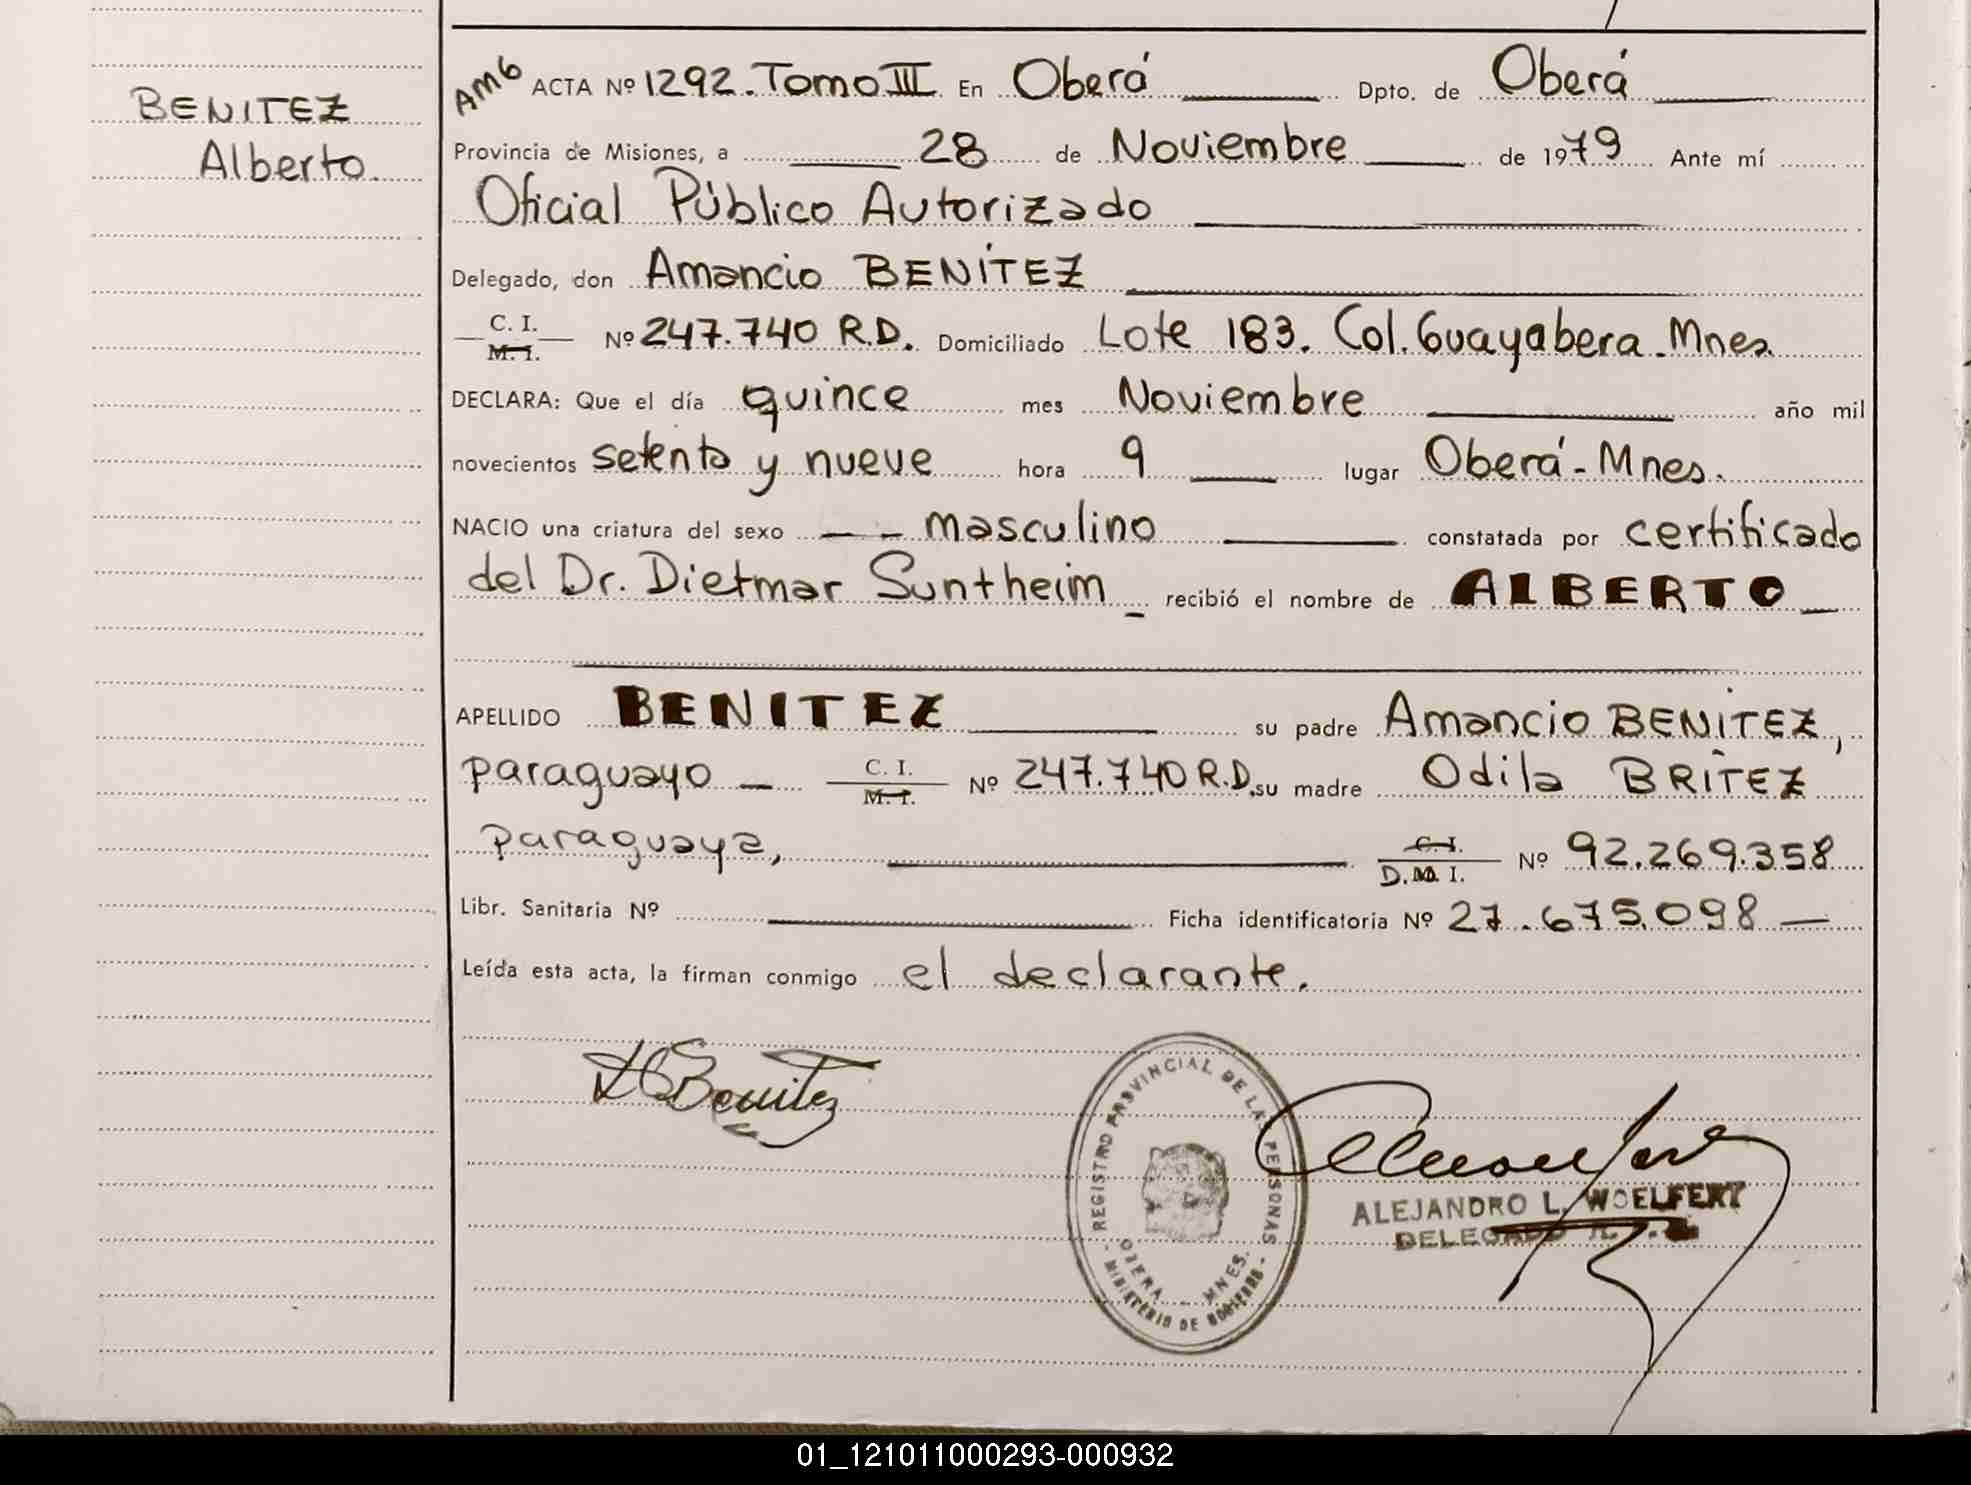 BENITEZ
Alberto.
AMG ACTA Nº 1292. Tomo III En Oberá Dpto. de Oberá
Provincia de Misiones, a 28 de Noviembre de 1979 Ante mí
Oficial Público Autorizado
Delegado, don Amancio BENÍTEZ
C. I.
M. I.
Nº 247.740 R.D. Domiciliado Lote 183. Col. Guayabera. Mnes.
DECLARA: Que el día quince mes Noviembre año mil
novecientos setenta y nueve hora 9 lugar Oberá - Mnes.
NACIO una criatura del sexo masculino constatada por certificado
del Dr. Dietmar Suntheim recibió el nombre de ALBERTO
APELLIDO BENITEZ su padre Amancio BENÍTEZ,
paraguayo C. I.
M. I.
Nº 247.740 R.D. su madre Odila BRÍTEZ
paraguaya, C. I.
D. M. I.
Nº 92.269.358
Libr. Sanitaria Nº Ficha identificatoria Nº 27.675.098
Leída esta acta, la firman conmigo el declarante.
Benitez
REGISTRO PROVINCIAL DE LAS PERSONAS
OBERA - MNES.
MINISTERIO DE GOBIERNO
ALEJANDRO L. WOELFERT
DELEGADO
01_121011000293-000932